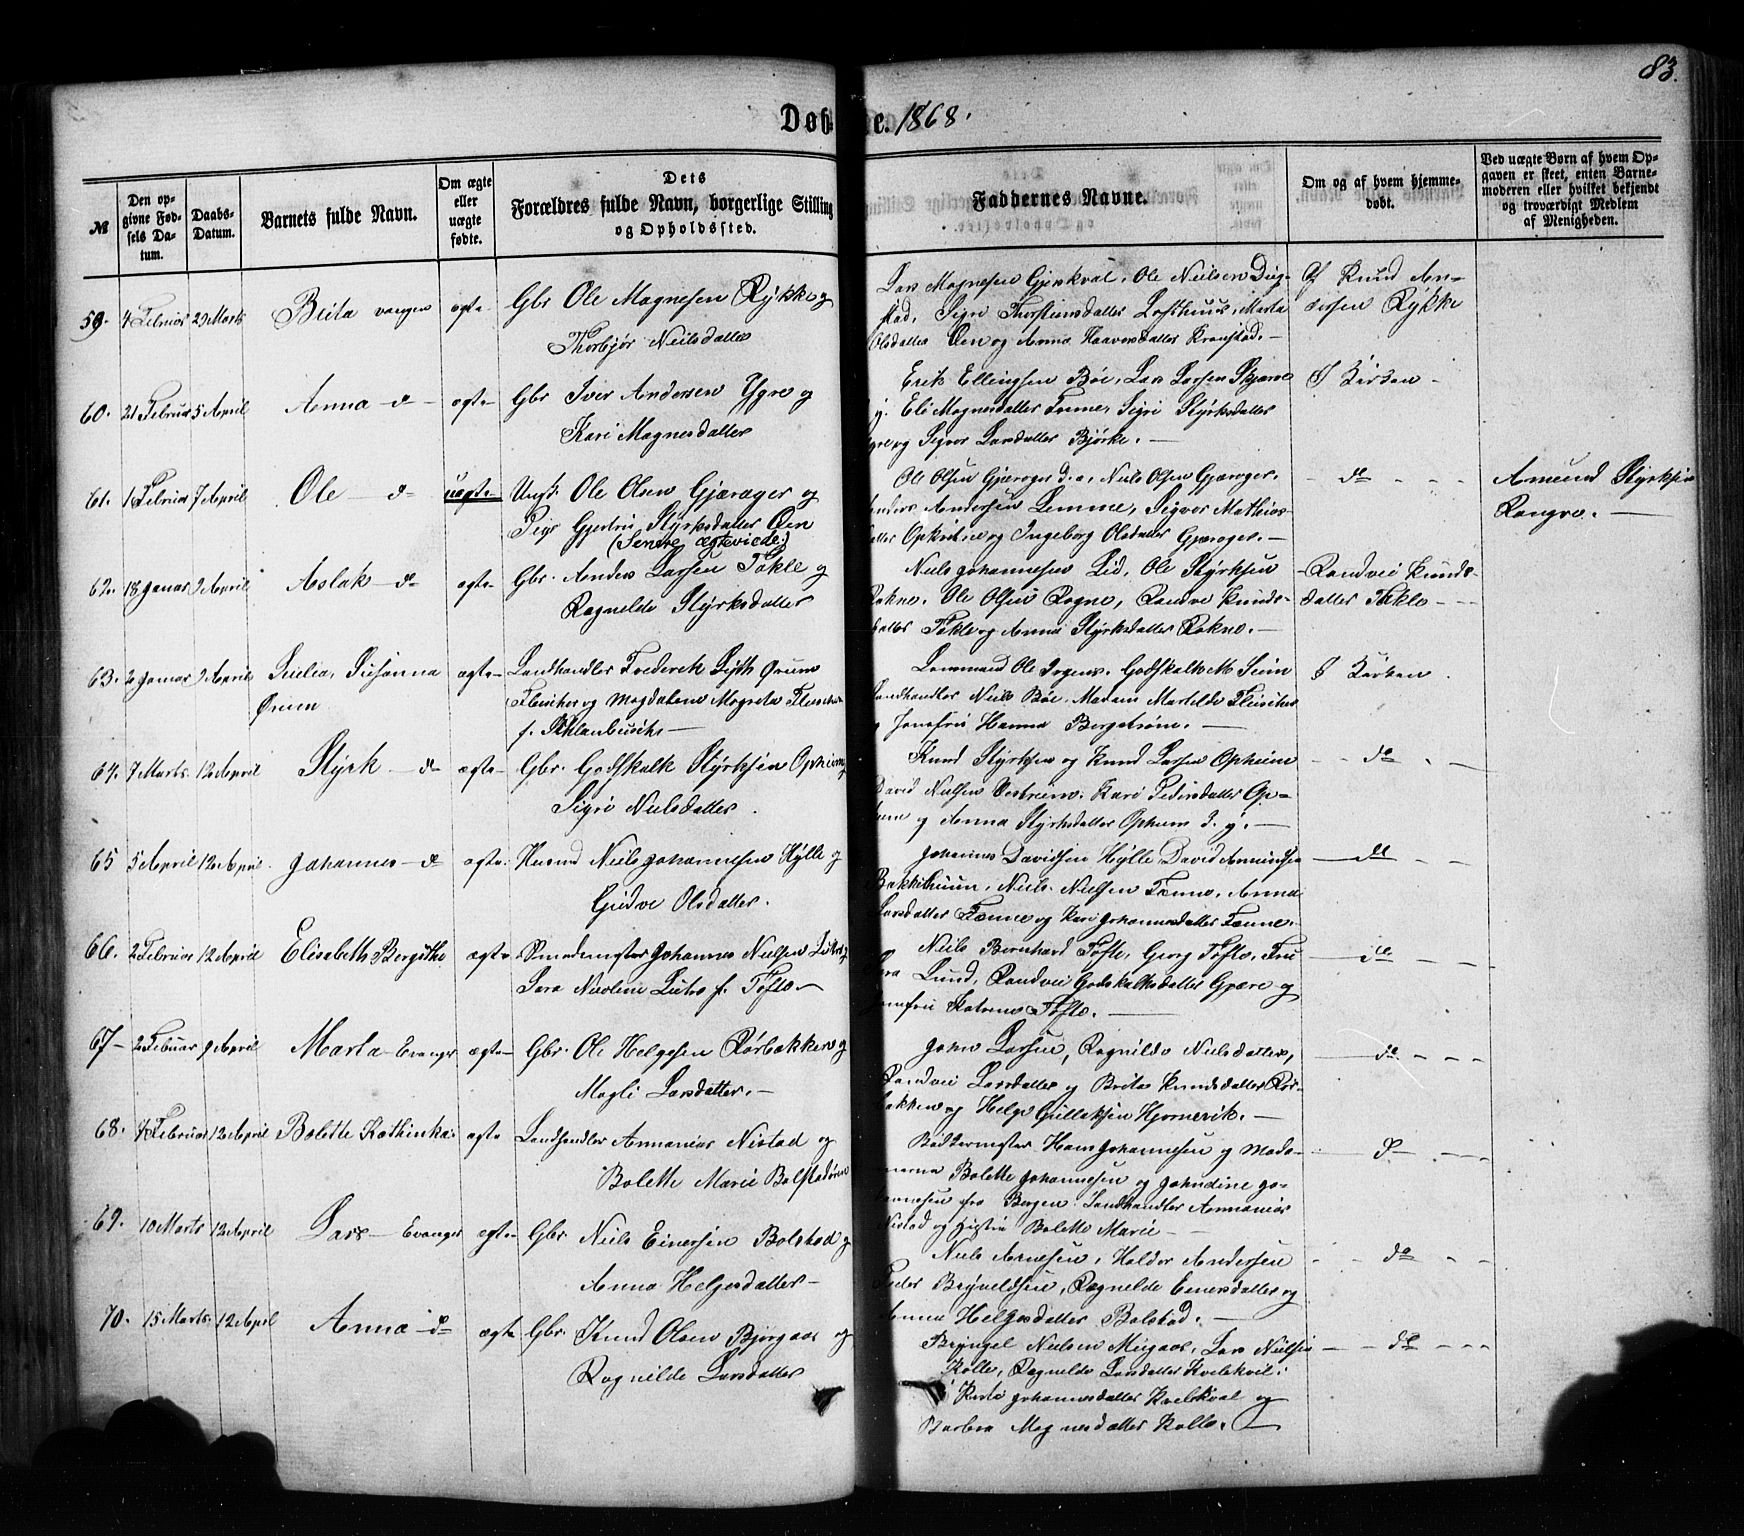 83.
Døbte. 1868.
№
Den opgivne Fødsels Datum.
Daabs-Datum.
Barnets fulde Navn.
Om ægte eller uægte fødte.
Dets Forældres fulde Navn, borgerlige Stilling og Opholdssted.
Faddernes Navne.
Om og af hvem hjemmedøbt.
Ved uægte Børn af hvem Opgaven er skeet, enten Barnemoderen eller hvilket bekjendt og troværdigt Medlem af Menigheden.
59. 4 Februar 29 Marts Brita vangen ægte Gbr Ole Magnesen Rykke og
Thorbjør Neilsdatter
Lars Magnesen Gjerkval, Ole Neilsen Dug-
stad, Sigri Thorsteinsdatter Lofthuus, Marta
Olsdatter Øen og Anna Haaversdatter Kronstad.
Af Knud An-
dersen Rykke
60. 21 Februar 5 April Anna do ægte Gbr Iver Andersen Ygre og
Kari Magnesdatter
Erik Ellingsen Böe, Lars Larsen Skjerve
y. Eli Magnesdatter Finne, Sigri Styrksdatter
Ygre og Sigvor Larsdatter Bjørke.
I Kirken
61. 1 Februar 7 April Ole do uægte Ungk. Ole Olsen Gjerager og
Pige Gjertru Styrksdatter Øen
(Senere ægteviede)
Ole Olsen Gjerager d.æ, Neils Olsen Gjerager,
Anders Andersen Lemme, Sigvor Mathias-
datter Opkvitne og Ingeborg Olsdatter Gjerager.
do
Amund Styrksen
Rongve.
62. 18 Januar 9 April Aslak do ægte Gbr. Anders Larsen Tøkle og
Ragnilde Styrksdatter
Neils Johannesen Lid, Ole Styrksen
Rokne, Ole Olsen Rogne, Randve Knuds-
datter Tøkle og Anna Styrksdatter Rokne.
Randvei Knuds-
datter Tøkle
63. 2 Januar 9 April Julia Susanna
Ørum ægte Landhandler Frederik Lyth Ørum
Fleischer og Magdalena Magreta Fleischer
f. Schlanbusch
Lensmand Ole Irgens, Godskalk M. Seim
Landhandler Neils Böe, Madam Matilde Fleischer
og Jomfru Hanna Bergstrøm.
I Kirken
64. 7 Marts 12 April Styrk do ægte Gbr. Godskalk Styrksen Opheim og
Sigri Neilsdatter.
Knud Styrksen og Knud Larsen Opheim
David Nielsen Vestrem, Kari Pedersdatter Op-
heim og Anna Styrksdatter Opheim d. y.
do
65 5 April 12 April Johannes do ægte Husmd Neils Johannesen Hylle og
Gudve Olsdatter.
Johannes Davidsen Hylle, David Amundsen
Bakkethuun, Neils Nielsen Tønne, Anna
Larsdatter Tønne og Kari Johannesdatter Tønne.
do
66. 2 Februar 12 April Elisabeth Bergithe ægte Smedmester Johannes Nielsen Lutro og
Sara Nicoline Lutro f. Tofte
Neils Bernhard Tofte, Georg Tofte, Fru
Sara Lund, Randvei Godskalksdatter Gjære og
Jomfru Katrine Tofte.
do
67 2 Februar 9 April Marta Evanger ægte Gbr. Ole Helgesen Rørbakken og
Magli Larsdatter.
John Larsen, Ragnilde Neilsdatter,
Randvei Larsdatter og Brita Knudsdatter Rør-
bakken og Helge Gullaksen Hjørnevik.
do
68. 4 Februar 12 April Bolette Kathinka. ægte Landhandler Annanias Nistad og
Bolette Marie Bolstadøren
Bødkermester Hans Johannesen og Mada-
merna Bolette Johannesen og Johndine Jo-
hannesen fra Bergen. Landhandler Annanias
Nistad og Bolette Marie
do
69. 10 Marts 12 April Lars Evanger ægte Gbr Neils Einersen Bolstad og
Anna Helgesdatter
Neils Arnesen, Haldor Andersen
Peder Brynildsen, Ragnilde Einersdatter og
Anna Helgesdatter Bolstad.
do
70. 15 Marts 12 April Anna do ægte Gbr. Knud Olsen Bjørgaas og
Ragnilde Larsdatter
Bryngel Nielsen Mugaas, Lars Neilsen
Kolle, Ragnilde Larsdatter Kvelekvil,
Johannesdatter Kvelekval og
Barbra Magnesdatter Kolle.
do